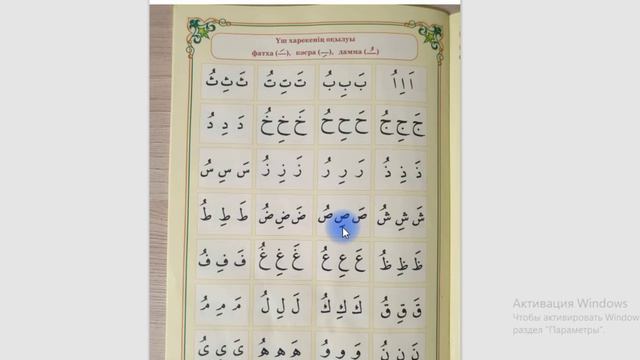 Үш харекенің оқылуы
фатха (ـَ), кәсра (ـِ), дамма (ـُ)
اَ اِ اُ بَ بِ بُ تَ تِ تُ ثَ ثِ ثُ
جَ جِ جُ حَ حِ حُ خَ خِ خُ دَ دِ دُ
ذَ ذِ ذُ رَ رِ رُ زَ زِ زُ سَ سِ سُ
شَ شِ شُ صَ صِ صُ ضَ ضِ ضُ طَ طِ طُ
ظَ ظِ ظُ عَ عِ عُ غَ غِ غُ فَ فِ فُ
قَ قِ قُ كَ كِ كُ لَ لِ لُ مَ مِ مُ
نَ نِ نُ وَ وِ وُ هَ هِ هُ يَ يِ يُ
Активация Windows
Чтобы активировать Window
раздел "Параметры".